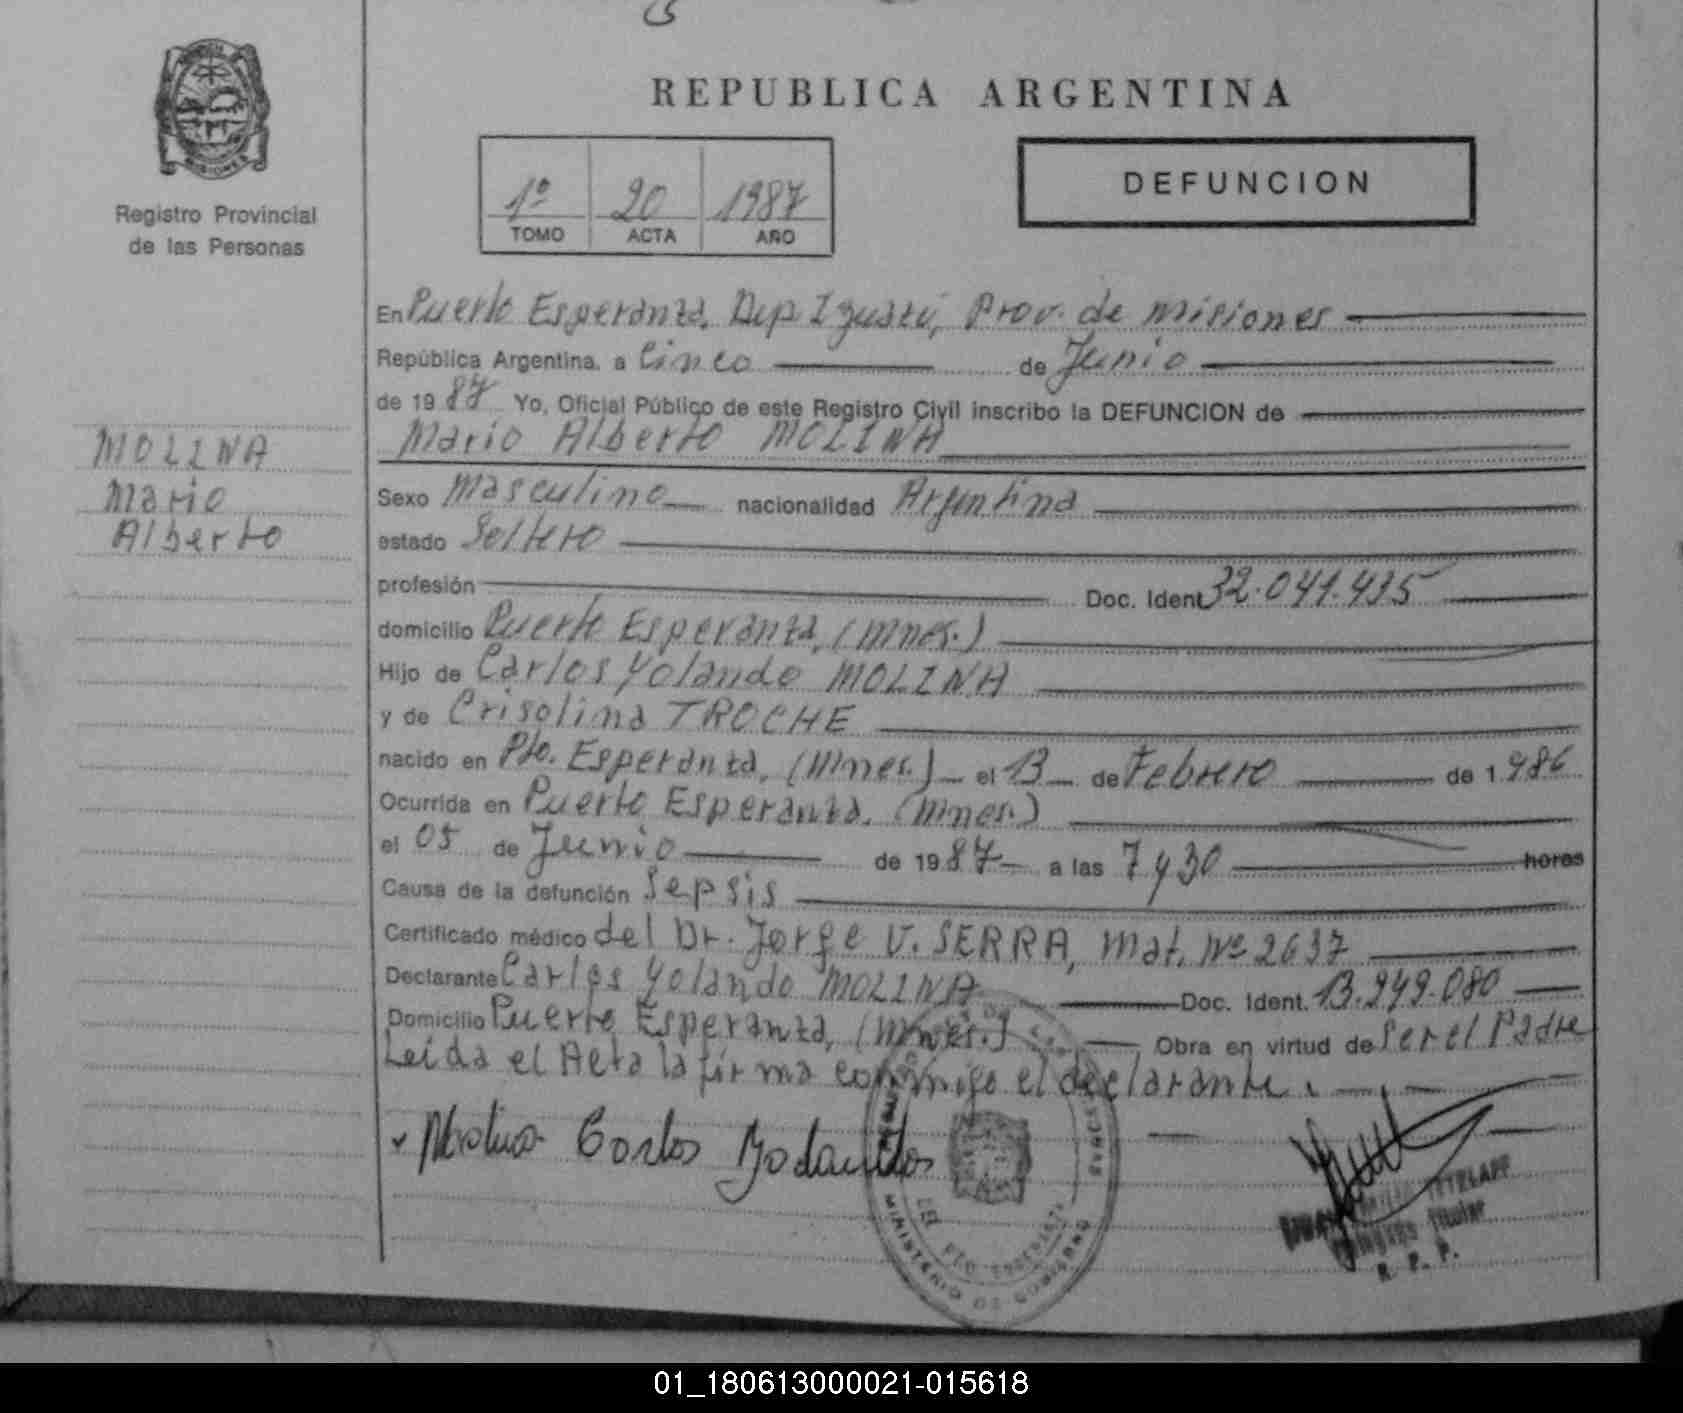 REPUBLICA ARGENTINA
MISIONES
Registro Provincial
de las Personas
1º 20 1987
TOMO ACTA AÑO
DEFUNCION
En Puerto Esperanza, Dep Iguazú, Prov. de Misiones
República Argentina, a Cinco de Junio
de 1987 Yo, Oficial Público de este Registro Civil inscribo la DEFUNCION de
Mario Alberto MOLINA
MOLINA
Mario
Alberto
Sexo Masculino nacionalidad Argentina
estado Soltero
profesión Doc. Ident 32.041.435
domicilio Puerto Esperanza, (Mnes.)
Hijo de Carlos Yolando MOLINA
y de Crisolina TROCHE
nacido en Pto. Esperanza, (Mnes.) el 13 de Febrero de 1.986
Ocurrida en Puerto Esperanza, (Mnes.)
el 05 de Junio de 1987 a las 7 y 30 horas
Causa de la defunción Sepsis
Certificado médico del Dr. Jorge V. SERRA, Mat. Nº 2637
Declarante Carlos Yolando MOLINA Doc. Ident. 13.949.080
Domicilio Puerto Esperanza, (Mnes.) Obra en virtud de ser el Padre
Leida el Acta la firma conmigo el declarante.
Molina Carlos Yolando
MINISTERIO DE GOBIERNO
Titular
R. P. P.
01_180613000021-015618